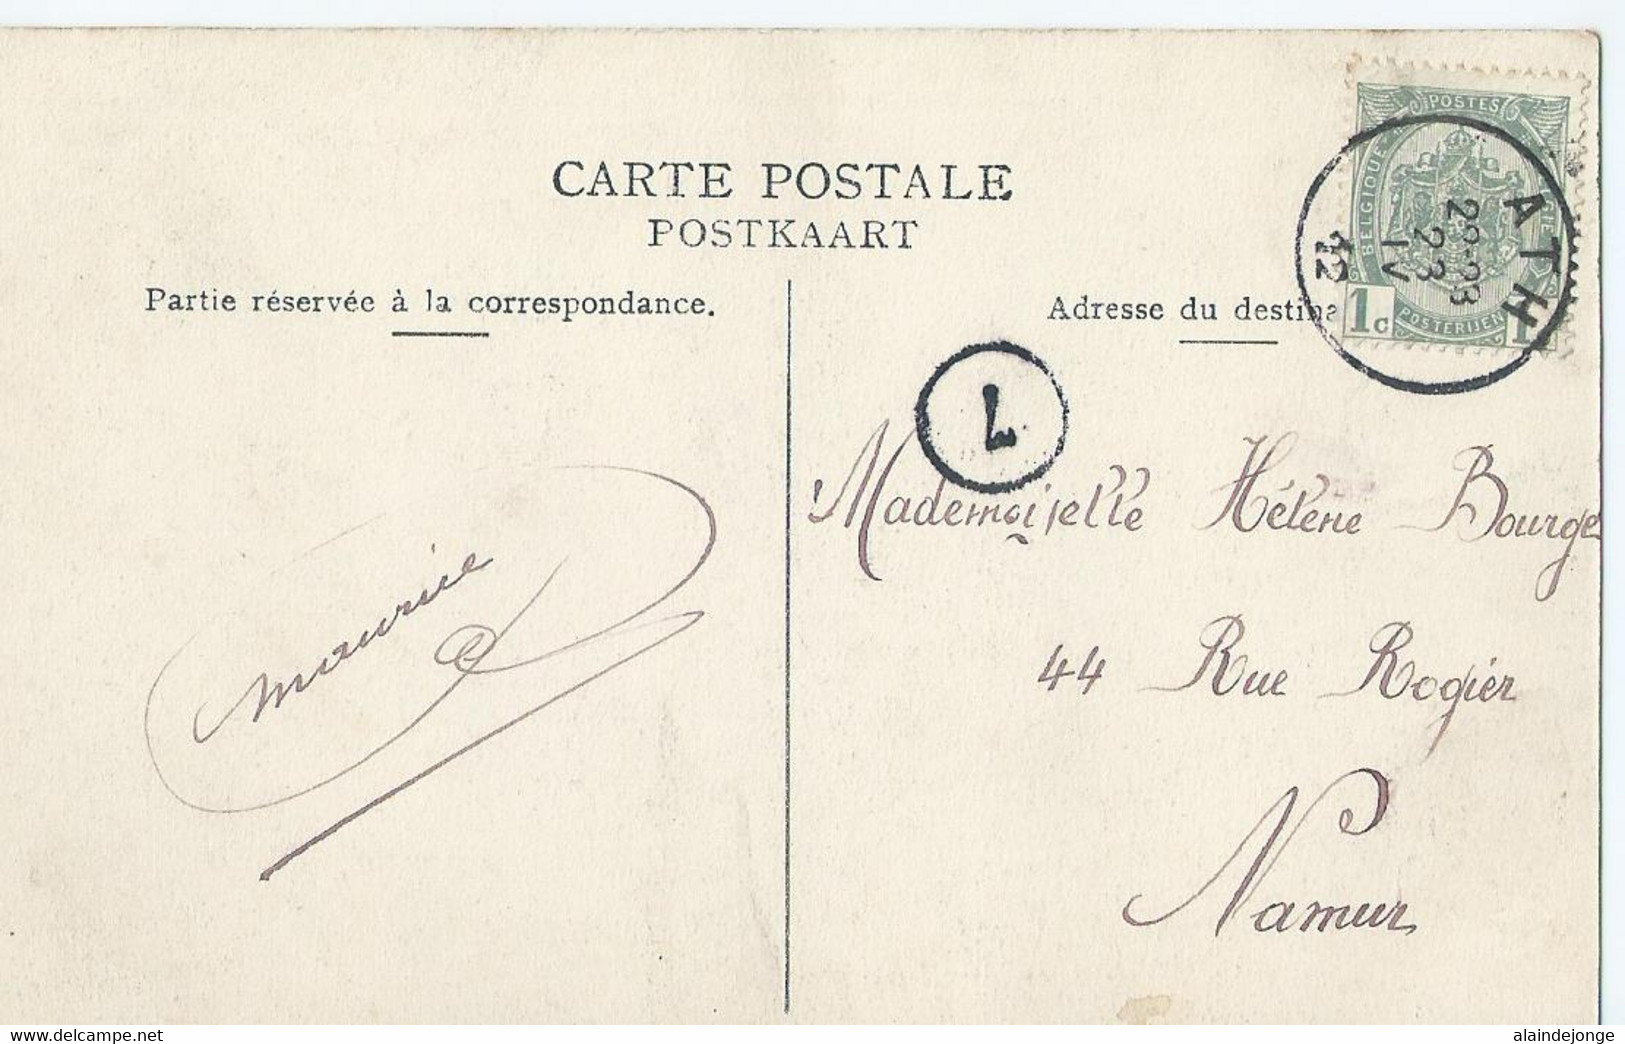 CARTE POSTALE
POSTKAART
Partie réservée à la correspondance.
Adresse du destina
POSTES
BELGIQUE
POSTERIJEN
1c 1
ATH
22-23
23
IV
12
7
Mademoiselle Hélène Bourge
44 Rue Rogier
Namur
Maurice
www.delcampe.net
alaindejonge